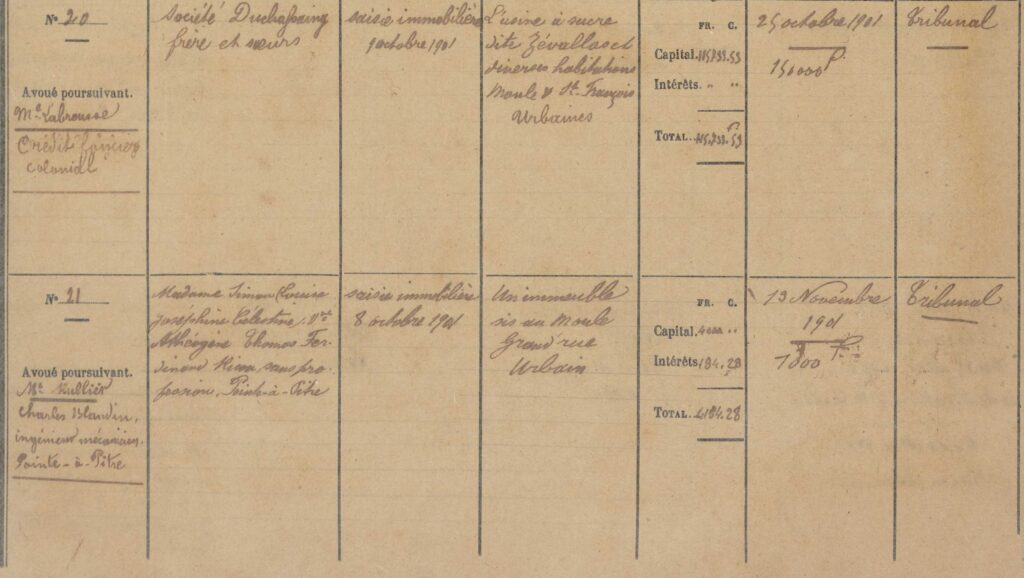 Nº 20
Avoué poursuivant.
Mᵉ Labrousse
Crédit foncier
Colonial
Société Duchassaing
frère et sœurs
saisie immobilière
9 octobre 1901
L'usine à sucre
dite Zévallos et
diverses habitations
Moule & St. François
Urbaines
FR. C.
Capital. 115,733.53
Intérêts. " "
TOTAL.. 115,733.53
25 octobre 1901
150000 f
Tribunal
Nº 21
Avoué poursuivant.
Mᵉ
Charles Blandin,
ingénieur mécanicien,
Pointe-à-Pitre
Madame Simon Louise
Joséphine Célestine, Vve
Athéogène Thomas Fer-
dinand sans pro-
fession, Pointe-à-Pitre
saisie immobilière
8 octobre 1901
Un immeuble
sis au Moule
Grand rue
Urbain
FR. C.
Capital. 4000 "
Intérêts 184.28
TOTAL.. 4184.28
13 Novembre
1901
1000
Tribunal